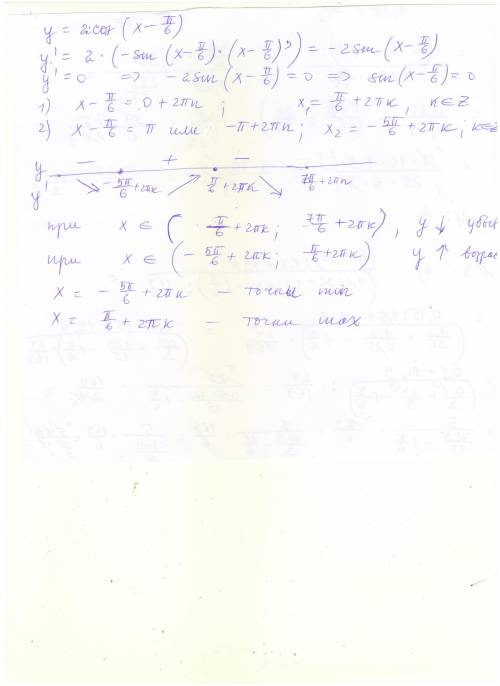 y = 2cos(x - π/6)
y' = 2·(-sin(x - π/6)·(x - π/6)') = -2sin(x - π/6)
y' = 0 => -2sin(x - π/6) = 0 => sin(x - π/6) = 0
1) x - π/6 = 0 + 2πn ; x₁ = π/6 + 2πк, к∈Z
2) x - π/6 = π или -π + 2πn ; x₂ = -5π/6 + 2πк ; к∈Z
y' − + −
y -5π/6 + 2πк π/6 + 2πк 7π/6 + 2πn
при x ∈ (π/6 + 2πк; 7π/6 + 2πк), y ↓ убыв
при x ∈ (-5π/6 + 2πк; π/6 + 2πк) y ↑ возрас
x = -5π/6 + 2πк – точки min
x = π/6 + 2πк – точки max